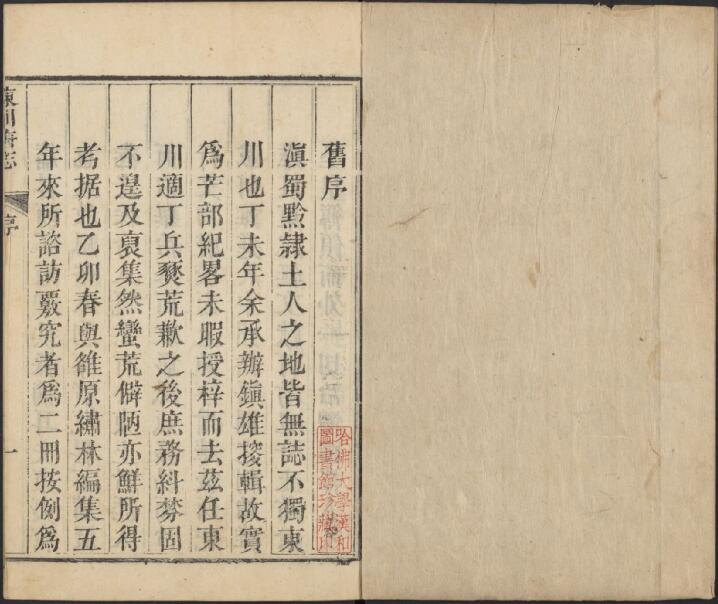 舊序
滇蜀黔隷土人之地皆無誌不獨東
川也丁未年余承辦鎭雄搜輯故實
爲芒部紀畧未暇授梓而去茲任東
川適丁兵燹荒歉之後庶務紏棼固
不遑及裒集然蠻荒僻陋亦鮮所得
考据也乙卯春與雒原繡林編集五
年來所諮訪覈究者爲二冊按例爲
東川府志
序
一
哈佛大學漢和
圖書館珍藏印